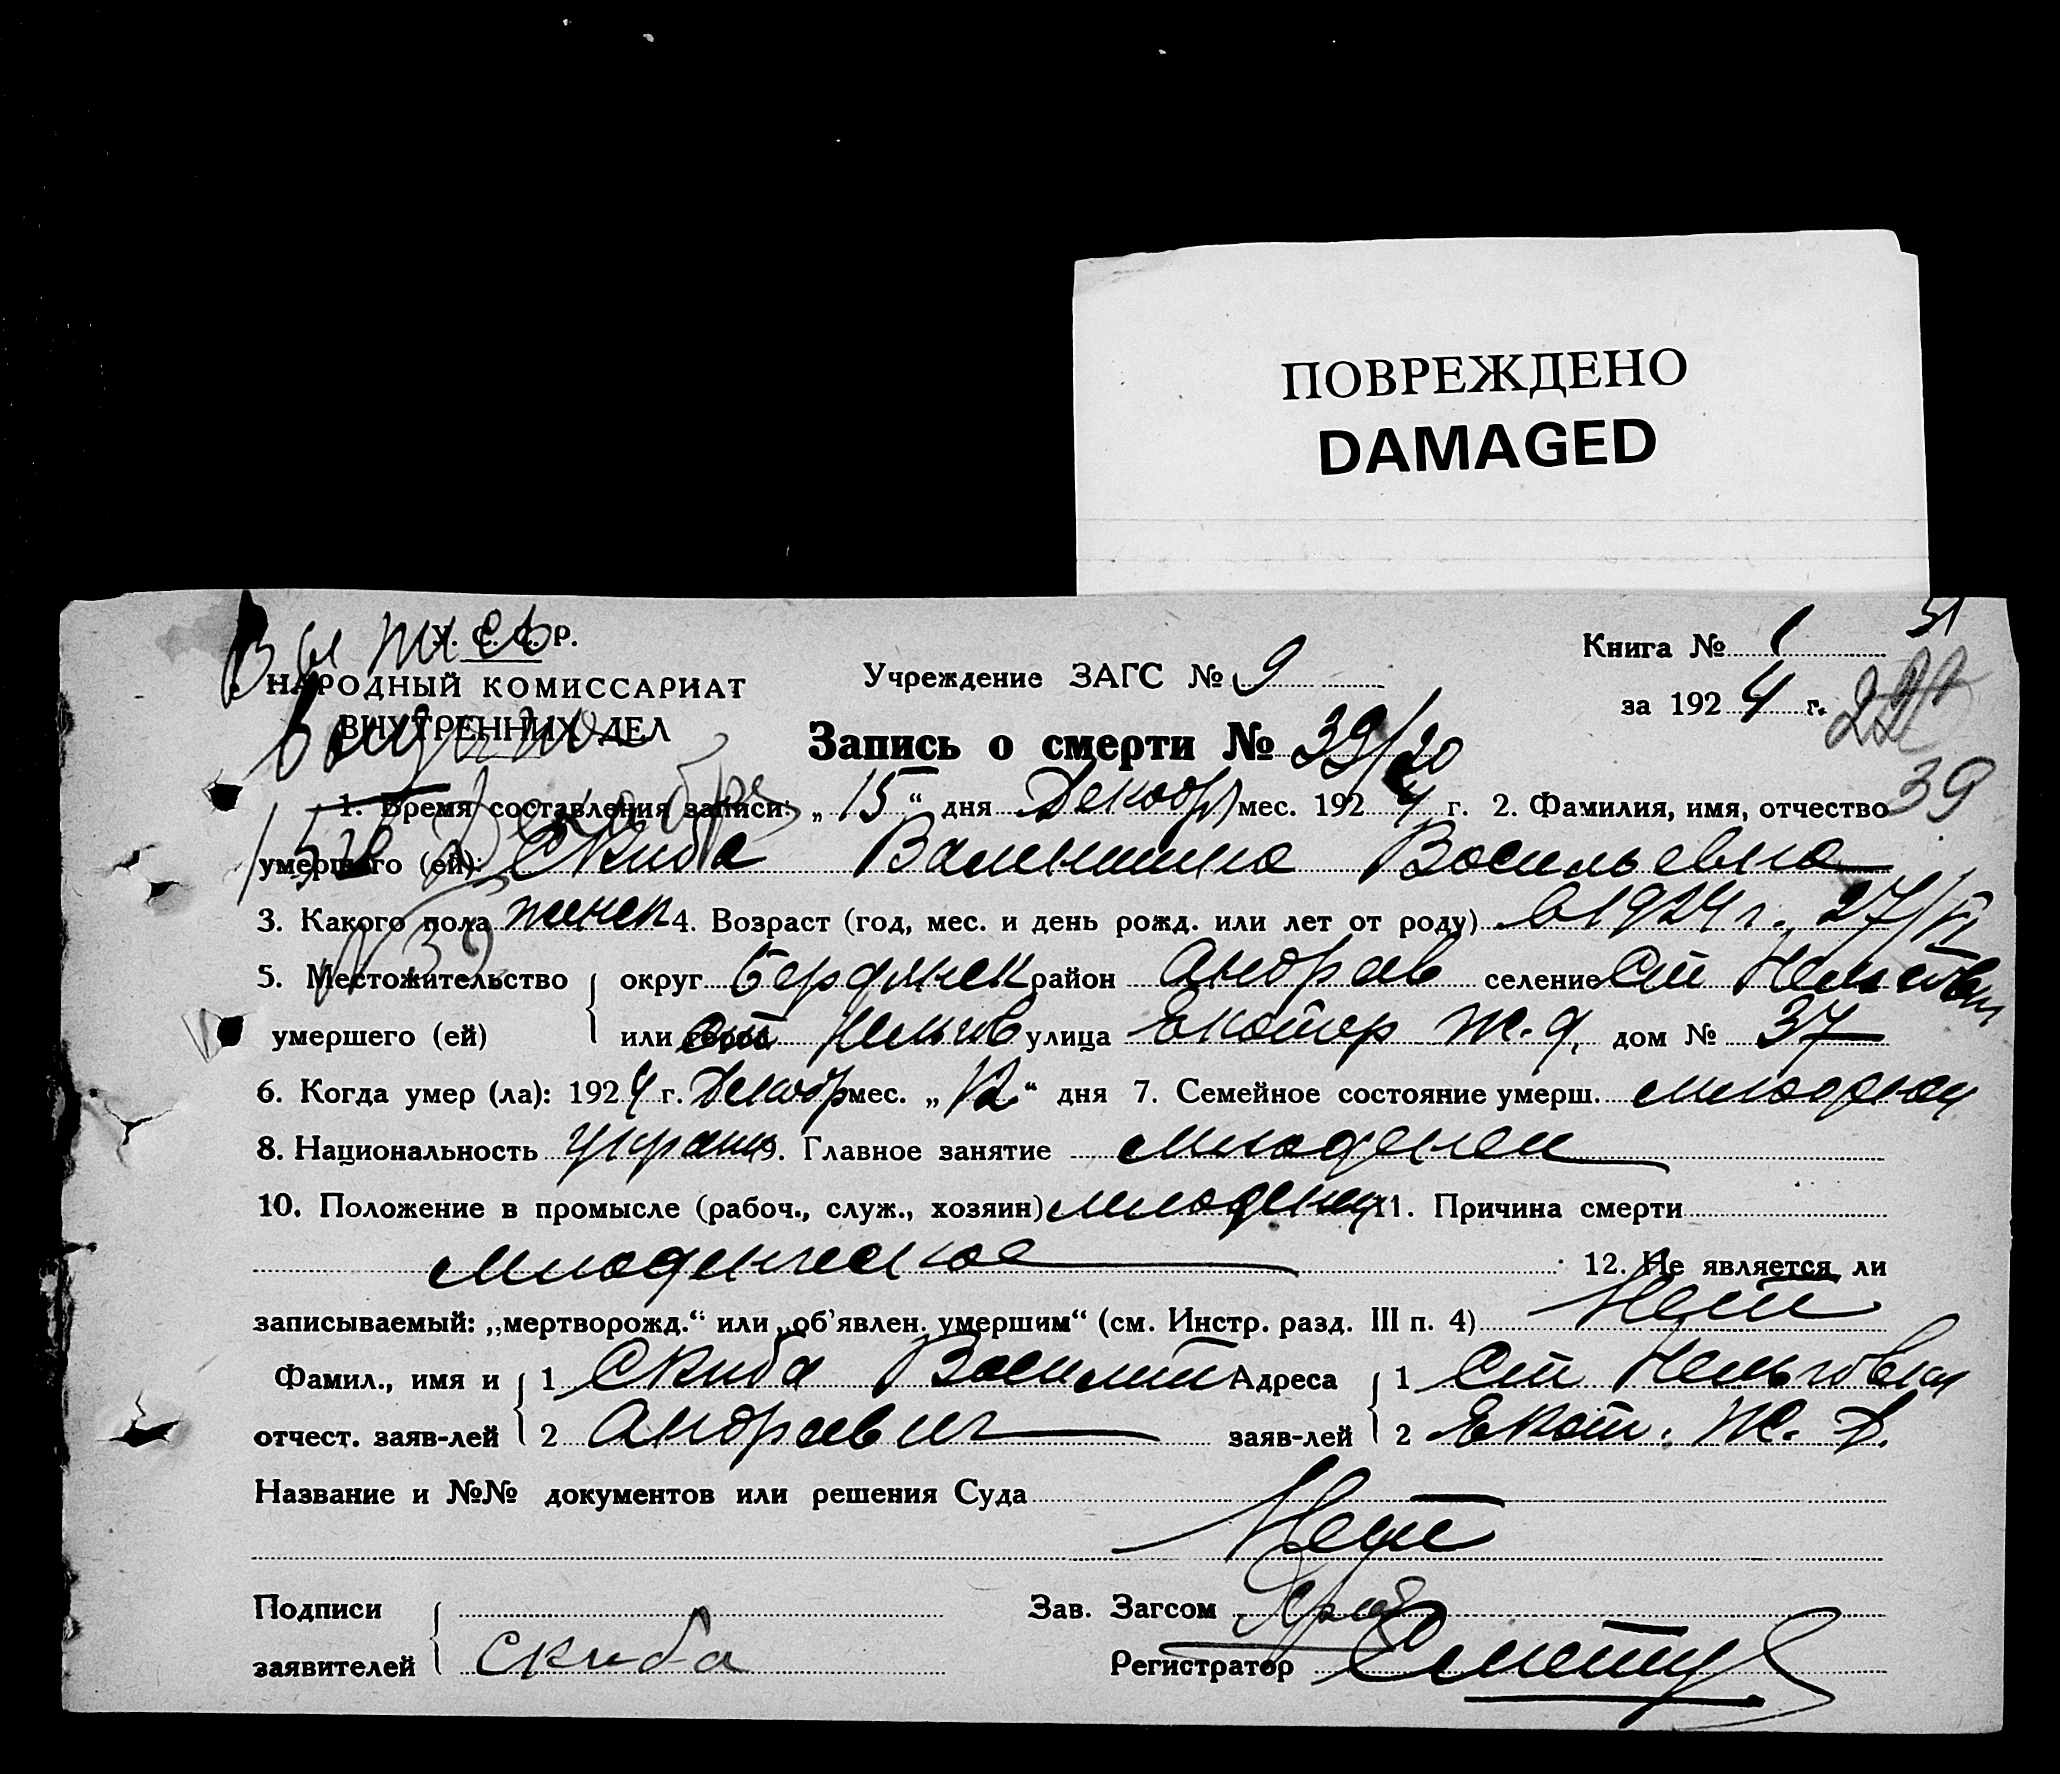 ПОВРЕЖДЕНО
DAMAGED
У. С. С. Р.
НАРОДНЫЙ КОМИССАРИАТ
ВНУТРЕННИХ ДЕЛ
Учреждение ЗАГС № 9
Книга № 1
за 1924 г.
39
Запись о смерти № 39/20
1. Время составления записи: „15“ дня Декабр мес. 1924 г. 2. Фамилия, имя, отчество
умершего (ей): Скиба Валентина Васильевна
3. Какого пола женск 4. Возраст (год, мес. и день рожд. или лет от роду) в 1924 г. 27/
5. Местожительство округ Бердянск район Андреев селение Ст Нельговка
умершего (ей) или ст Нельгов улица Екатер ж.д. дом № 37
6. Когда умер (ла): 1924 г. Декабр мес. „12“ дня 7. Семейное состояние умерш. младенец
8. Национальность украин 9. Главное занятие младенец
10. Положение в промысле (рабоч., служ., хозяин) младенец 11. Причина смерти
младенческое 12. Не является ли
записываемый: „мертворожд.“ или „об'явлен. умершим“ (см. Инстр. разд. III п. 4) Нет
Фамил., имя и 1 Скиба Василий Адреса 1 Ст Нельговка
отчест. заяв-лей 2 Андреевич заяв-лей 2 Екат. Ж. Д.
Название и №№ документов или решения Суда
Нет
Подписи Зав. Загсом
заявителей Скиба Регистратор